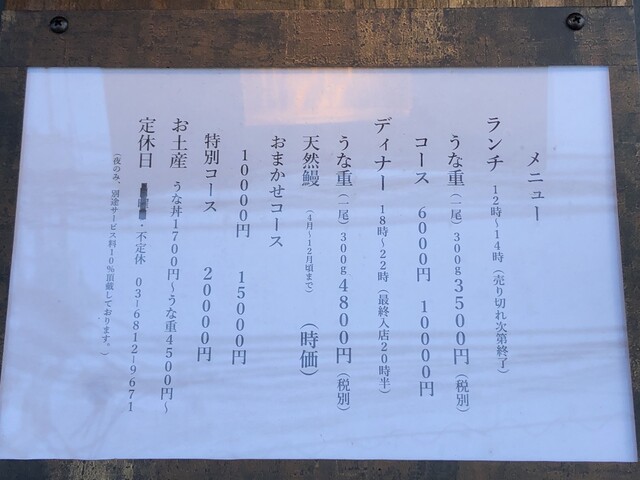 メニュー
ランチ 12時〜14時(売り切れ次第終了)
うな重(一尾)300g 3500円(税別)
コース 6000円 10000円
ディナー 18時〜22時(最終入店20時半)
うな重(一尾)300g 4800円(税別)
天然鰻 (4月〜12月頃まで) (時価)
おまかせコース
10000円 15000円
特別コース 20000円
お土産 うな丼1700円〜うな重4500円〜
定休日 ・不定休 03-6812-9671
(夜のみ、別途サービス料10%頂戴しております。)